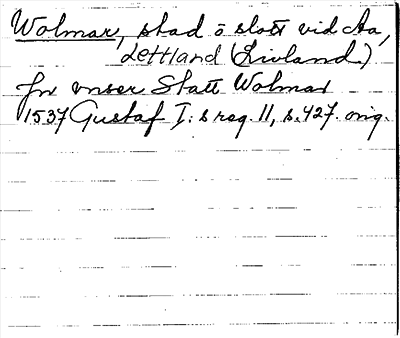 Wolmar, stad ō slott vid Aa,
Lettland (Livland.)
In vnser Statt Wolmar
1537 Gustaf I:s reg. 11, s. 427. orig.